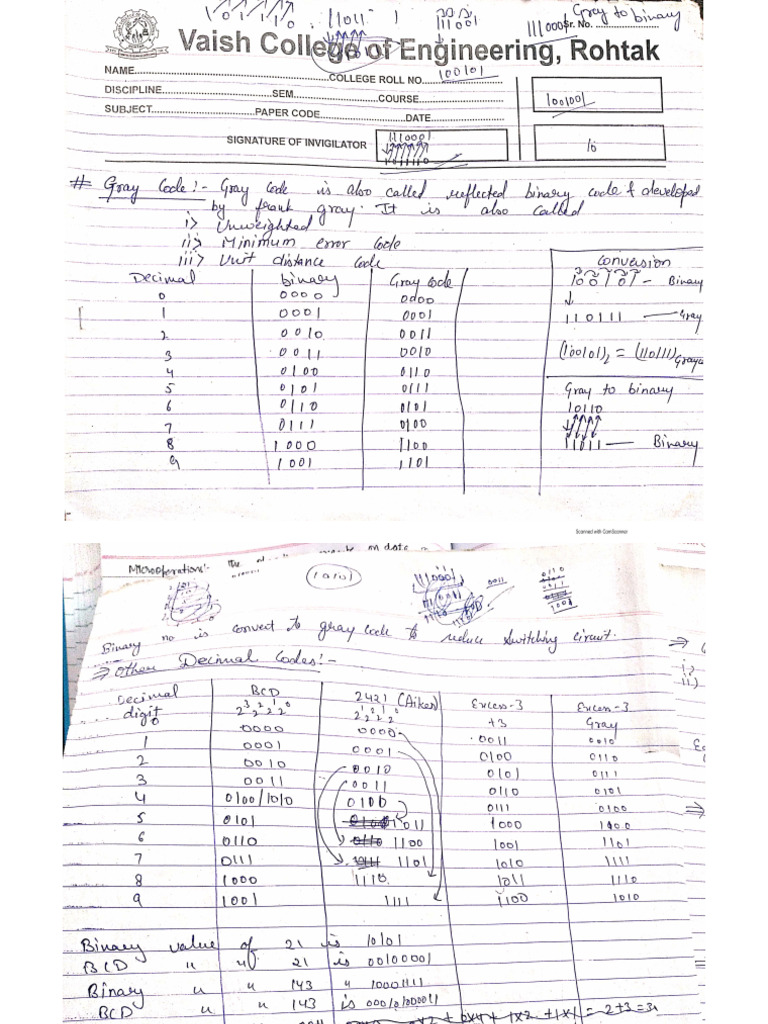 Gray to binary
11011
111001
111000
Sr. No.
Vaish College of Engineering, Rohtak
NAME
COLLEGE ROLL NO. 100101
DISCIPLINE SEM COURSE
1001001
SUBJECT PAPER CODE DATE
SIGNATURE OF INVIGILATOR
1110001
10
# Gray Code :- Gray Code is also called reflected binary code & developed
by frank gray. It is also called
i> Unweighted
ii> Minimum error Code
iii> Unit distance Code
Decimal binary Gray code
0 0000 0000
1 0001 0001
2 0010 0011
3 0011 0010
4 0100 0110
5 0101 0111
6 0110 0101
7 0111 0100
8 1000 1100
9 1001 1101
Conversion
100101 - Binary
110111 - Gray
(100101)2 = (110111)Gray
Gray to binary
10110
11011 - Binary
Scanned with CamScanner
Microoperations:- The
on data
10101
0011
Binary no is convert to gray code to reduce switching circuit.
=> Other Decimal Codes:-
Decimal digit BCD 2421 (Aiken) Excess-3 Excess-3
2^3 2^2 2^1 2^0 2^1 2^2 2^1 2^0 +3 Gray
0 0000 0000 0011 0010
1 0001 0001 0100 0110
2 0010 0010 0101 0111
3 0011 0011 0110 0101
4 0100/1010 0100 0111 0100
5 0101 1011 1000 1100
6 0110 1100 1001 1101
7 0111 1101 1010 1111
8 1000 1110 1011 1110
9 1001 1111 1100 1010
Binary value of 21 is 10101
BCD " of 21 is 00100001
Binary " " 143 " 10001111
BCD " " 143 is 000101000011